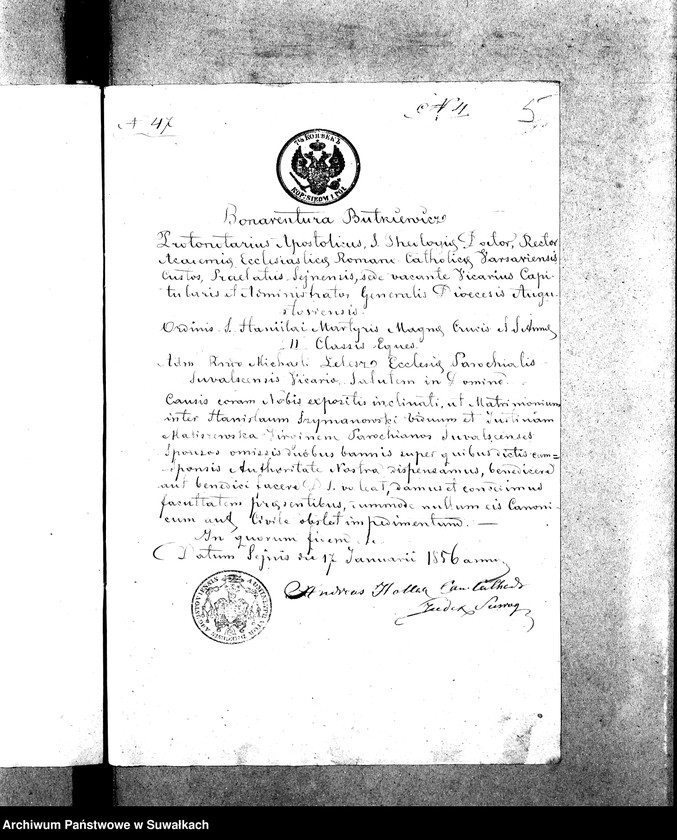 N 47
N 4
5
7½ КОПѢЕКЪ
KOPIEIEK I PÓŁ
Bonaventura Butkiewicz
Protonotarius Apostolicus, S. Theologiæ Doctor, Rector
Academiæ Ecclesiasticæ Romano Catholicæ Varsaviensis
Custos, Praelatus Sejnensis, sede vacante Vicarius Capi-
tularis et Administrator Generalis Dioecesis Augu-
stoviensis
Ordinis S. Stanislai Martyris Magnæ Crucis et S. Annæ
II Classis Eques
Adm Rndo Michaeli Ecclesiæ Parochialis
Suvalscensis Vicario Salutem in Domino
Causis coram Nobis expositis inclinati, ut Matrimonium
inter Stanislaum Szymanowski viduum et Justinam
Matiszewska Virginem Parochianos Suvalscenses
Sponsos omissis duobus bannis super quibus dictis cum
Sponsis Authoritate Nostra dispensamus, benedicere
aut benedici facere D. S. valeat, damus et concedimus
facultatem præsentibus, dummodo nullum eis Canoni-
cum aut Civile obstet impedimentum. —
In quorum fidem
Datum Sejnis die 17 Januarii 1856 anno
Andreas Cathedr
Judex Surrog